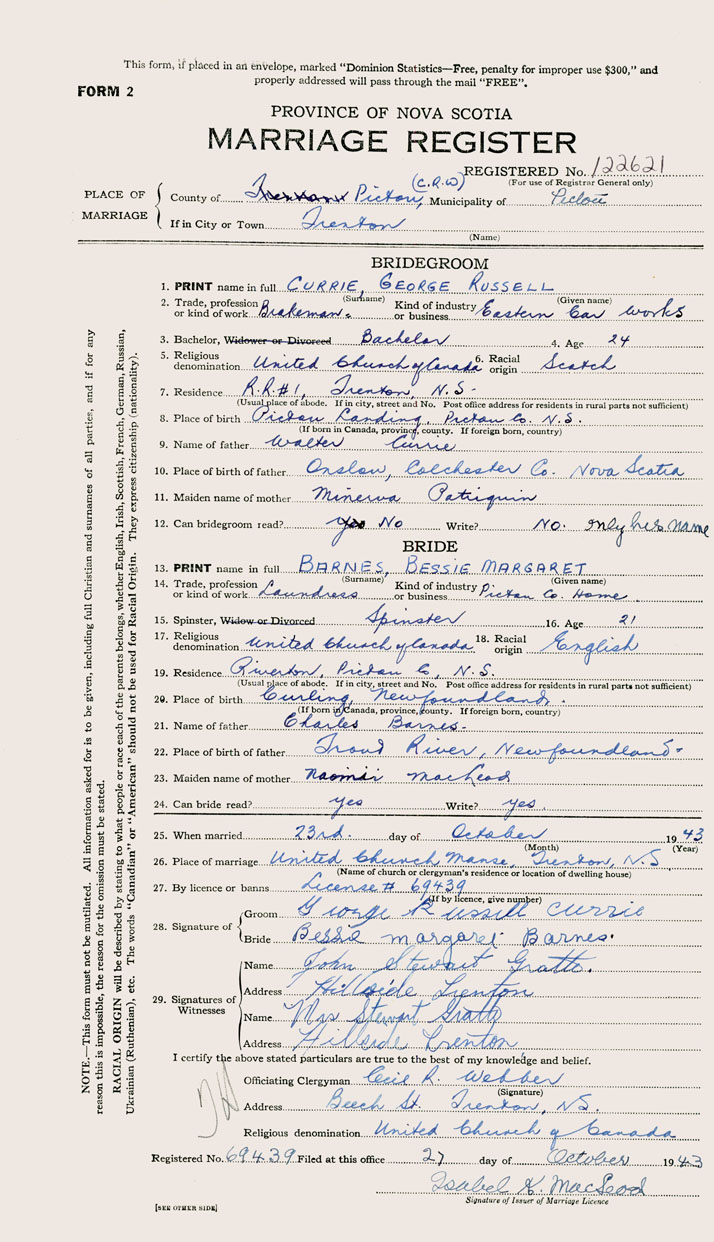 This form, if placed in an envelope, marked "Dominion Statistics—Free, penalty for improper use $300," and
properly addressed will pass through the mail "FREE".
FORM 2
PROVINCE OF NOVA SCOTIA
MARRIAGE REGISTER
REGISTERED No. 122621
(For use of Registrar General only)
PLACE OF MARRIAGE
County of Trenton Pictou, (C.R.W) Municipality of Pictou
If in City or Town Trenton
(Name)
BRIDEGROOM
1. PRINT name in full CURRIE, GEORGE RUSSELL
(Surname) (Given name)
2. Trade, profession or kind of work Brakeman. Kind of industry or business Eastern Car Works
3. Bachelor, Widower or Divorced Bachelor 4. Age 24
5. Religious denomination United Church of Canada 6. Racial origin Scotch
7. Residence R.R.#1, Trenton, N.S.
(Usual place of abode. If in city, street and No. Post office address for residents in rural parts not sufficient)
8. Place of birth Pictou Landing, Pictou Co. N.S.
(If born in Canada, province, county. If foreign born, country)
9. Name of father Walter Currie
10. Place of birth of father Onslow, Colchester Co. Nova Scotia
11. Maiden name of mother Minerva Patriquin
12. Can bridegroom read? yes No Write? No. only his name
BRIDE
13. PRINT name in full BARNES, BESSIE MARGARET
(Surname) (Given name)
14. Trade, profession or kind of work Laundress Kind of industry or business Pictou Co. Home
15. Spinster, Widow or Divorced Spinster 16. Age 21
17. Religious denomination United Church of Canada 18. Racial origin English
19. Residence Riverton, Pictou Co, N.S.
(Usual place of abode. If in city, street and No. Post office address for residents in rural parts not sufficient)
20. Place of birth Curling, Newfoundland.
(If born in Canada, province, county. If foreign born, country)
21. Name of father Charles Barnes.
22. Place of birth of father Troud River, Newfoundland-
23. Maiden name of mother Naomi MacLeod
24. Can bride read? yes Write? yes.
25. When married 23rd. day of October 1943
(Month) (Year)
26. Place of marriage United Church Manse, Trenton, N.S
(Name of church or clergyman's residence or location of dwelling house)
27. By licence or banns License # 69439
(If by licence, give number)
28. Signature of
Groom George Russell Currie
Bride Bessie margaret Barnes.
29. Signatures of Witnesses
Name John Stewart Gratto.
Address Hillside Trenton
Name Mrs Stewart Gratto
Address Hillside Trenton
I certify the above stated particulars are true to the best of my knowledge and belief.
Officiating Clergyman Cecil R. Webber
(Signature)
Address Beech St. Trenton, NS.
Religious denomination United Church of Canada
Registered No. 69439 Filed at this office 27 day of October 1943
Isabel K. MacLeod
Signature of Issuer of Marriage Licence
[SEE OTHER SIDE]
NOTE.—This form must not be mutilated. All information asked for is to be given, including full Christian and surnames of all parties, and if for any
reason this is impossible, the reason for the omission must be stated.
RACIAL ORIGIN will be described by stating to what people or race each of the parents belongs, whether English, Irish, Scottish, French, German, Russian,
Ukrainian (Ruthenian), etc. The words "Canadian" or "American" should not be used for Racial Origin. They express citizenship (nationality).